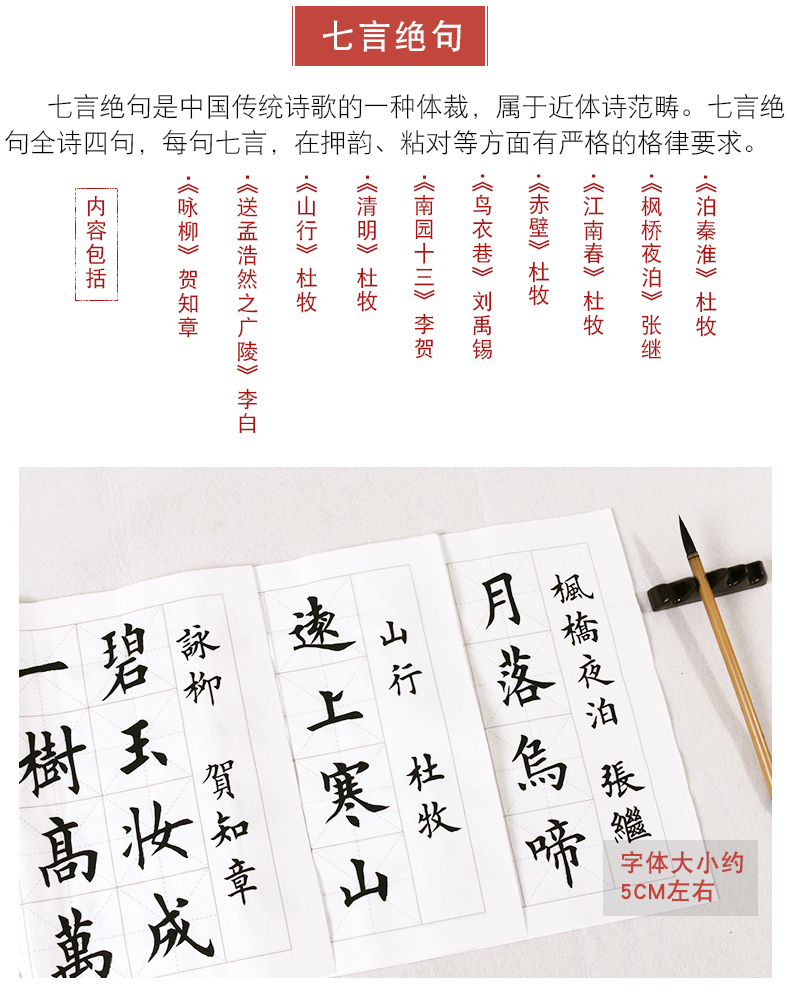 七言绝句
七言绝句是中国传统诗歌的一种体裁，属于近体诗范畴。七言绝
句全诗四句，每句七言，在押韵、粘对等方面有严格的格律要求。
内容包括
·《咏柳》贺知章
·《送孟浩然之广陵》李白
·《山行》杜牧
·《清明》杜牧
·《南园十三》李贺
·《鸟衣巷》刘禹锡
·《赤壁》杜牧
·《江南春》杜牧
·《枫桥夜泊》张继
·《泊秦淮》杜牧
楓橋夜泊 張繼
月落烏啼
山行 杜牧
遠上寒山
詠柳 賀知章
碧玉妆成
一樹高萬
字体大小约
5CM左右